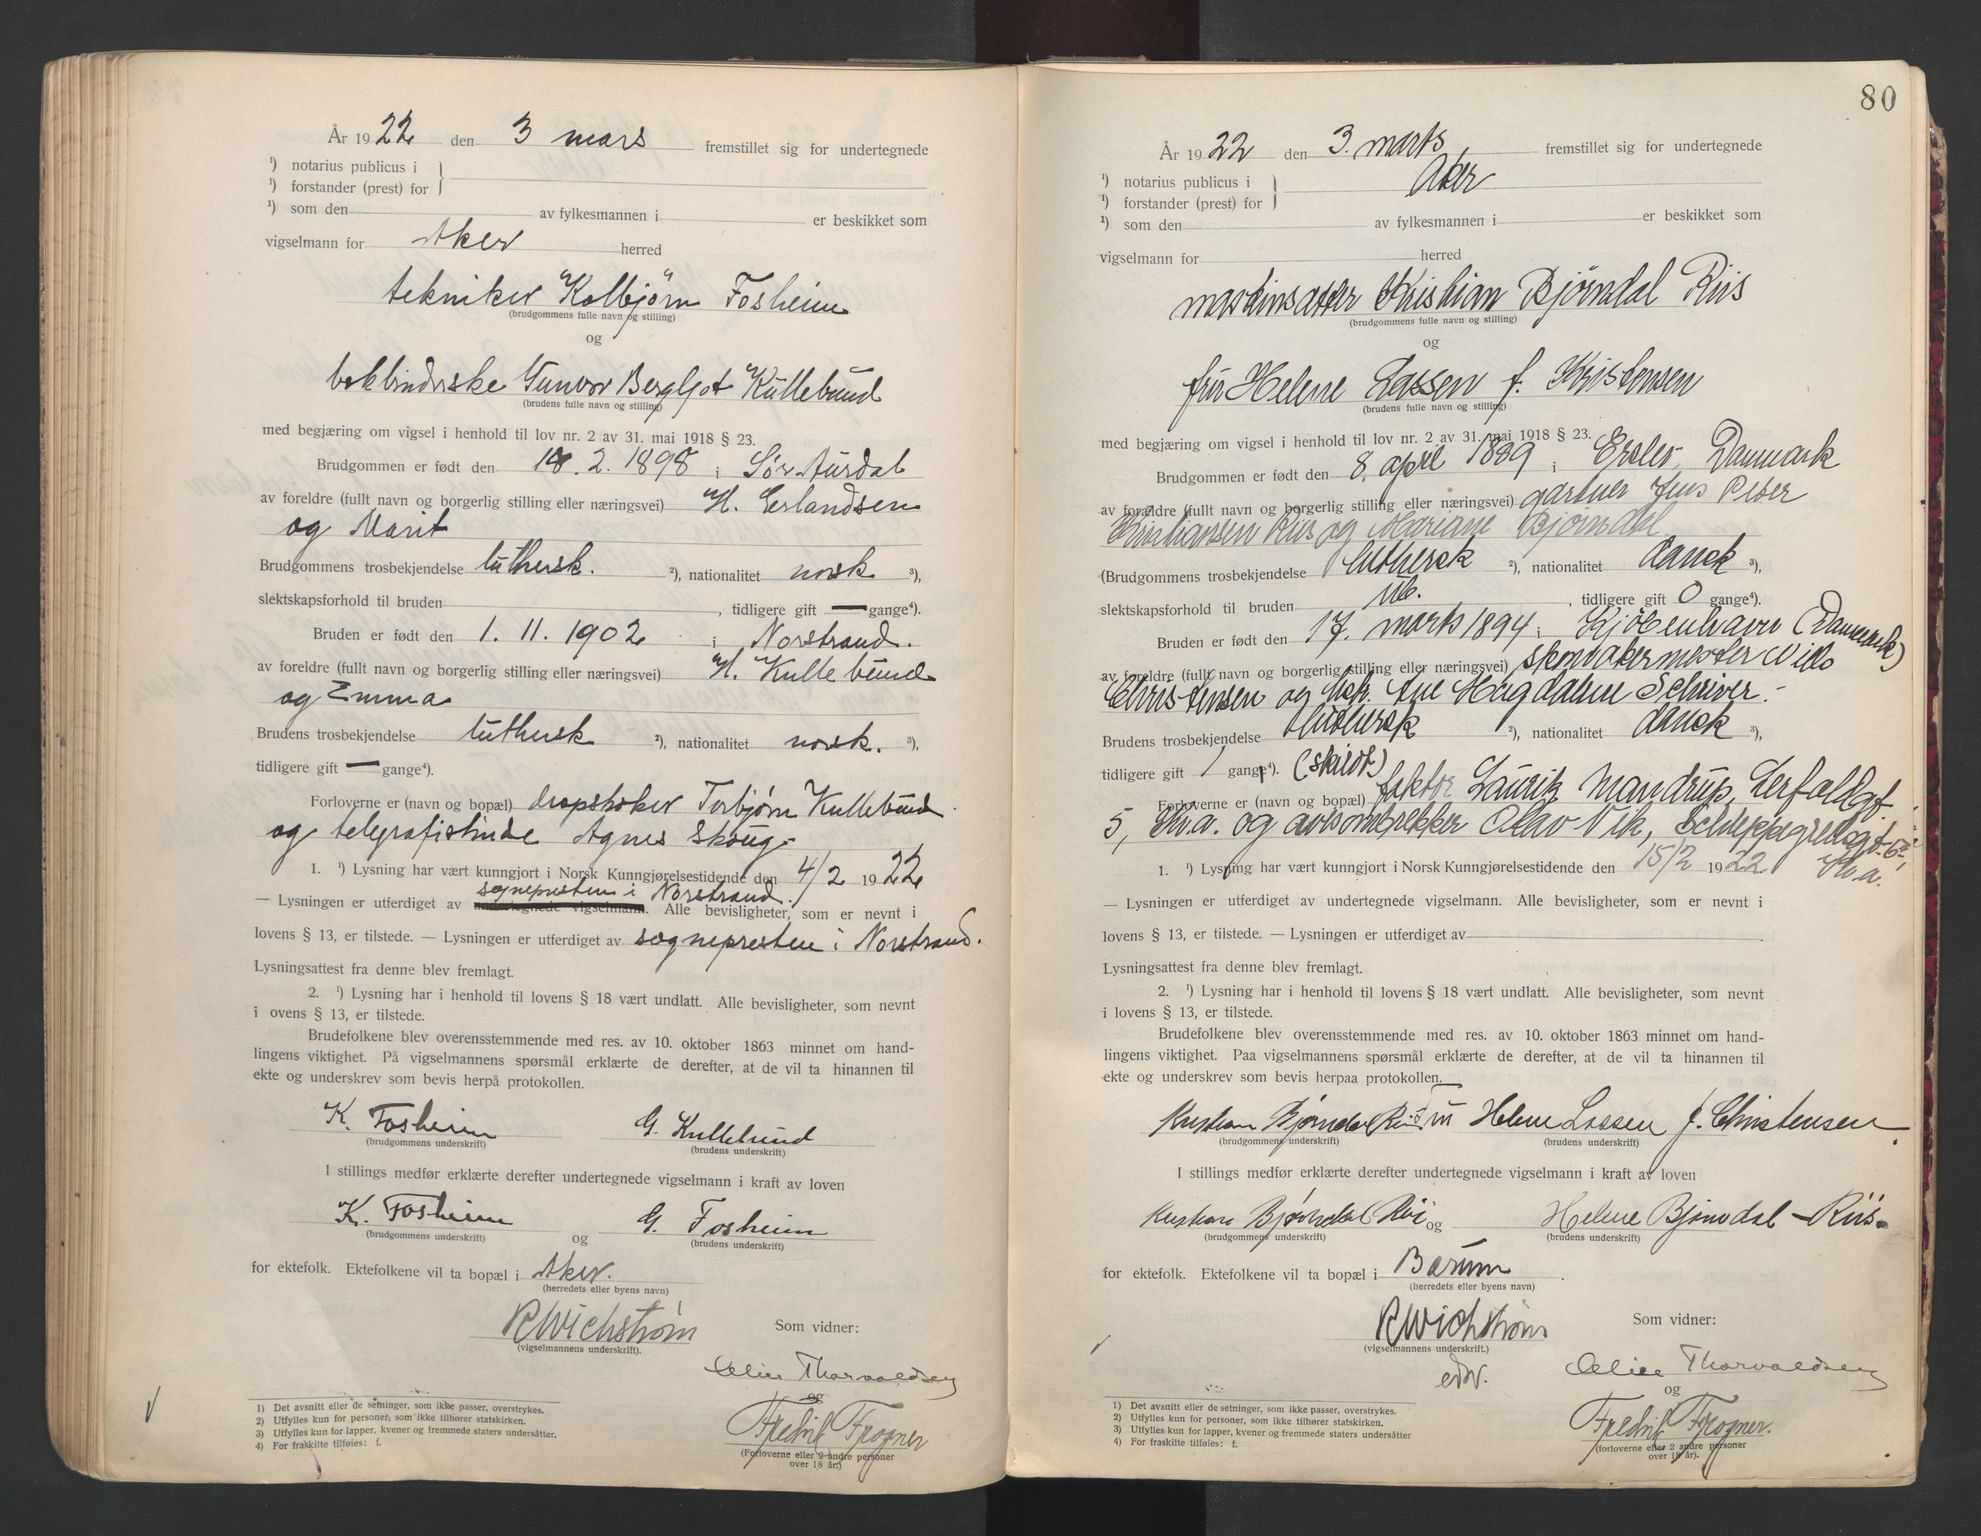 År 1922 den 3 mars fremstillet sig for undertegnede
¹) notarius publicus i
¹) forstander (prest) for
¹) som den av fylkesmannen i er beskikket som
vigselmann for Aker herred
tekniker Kolbjørn Fosheim
(brudgommens fulle navn og stilling)
og
bokbinderske Gunvor Bergljot Kullebund
(brudens fulle navn og stilling)
med begjæring om vigsel i henhold til lov nr. 2 av 31. mai 1918 § 23.
Brudgommen er født den 18. 2. 1898 i Sør Aurdal
av foreldre (fullt navn og borgerlig stilling eller næringsvei) H. Erlandsen
og Marit
Brudgommens trosbekjendelse luthersk. ²), nationalitet norsk ³),
slektskapsforhold til bruden , tidligere gift — gange⁴).
Bruden er født den 1. 11. 1902 i Norstrand.
av foreldre (fullt navn og borgerlig stilling eller næringsvei) H. Kullebund
og Emma
Brudens trosbekjendelse luthersk ²), nationalitet norsk. ³),
tidligere gift — gange⁴).
Forloverne er (navn og bopæl) dropskoker Torbjørn Kullebund
og telegrafistinde Agnes Skoug
1. ¹) Lysning har vært kunngjort i Norsk Kunngjørelsestidende den 4/2 1922
sognepresten i Norstrand.
— Lysningen er utferdiget av undertegnede vigselmann. Alle bevisligheter, som er nevnt i
lovens § 13, er tilstede. — Lysningen er utferdiget av sognepresten i Norstrand.
Lysningsattest fra denne blev fremlagt.
2. ¹) Lysning har i henhold til lovens § 18 vært undlatt. Alle bevisligheter, som nevnt
i ovens § 13, er tilstede.
Brudefolkene blev overensstemmende med res. av 10. oktober 1863 minnet om hand-
lingens viktighet. På vigselmannens spørsmål erklærte de derefter, at de vil ta hinannen til
ekte og underskrev som bevis herpå protokollen.
K. Fosheim G. Kullebund
(brudgommens underskrift) (brudens underskrift)
I stillings medfør erklærte derefter undertegnede vigselmann i kraft av loven
K. Fosheim og G. Fosheim
(brudgommens underskrift) (brudens underskrift)
for ektefolk. Ektefolkene vil ta bopæl i Aker.
(herredets eller byens navn)
RWichstrøm Som vidner:
(vigselmannens underskrift).
Thorvaldsen
og
Fredrik Frogner
(Forloverne eller 2 andre personer
over 18 år.)
1) Det avsnitt eller de setninger, som ikke passer, overstrykes.
2) Utfylles kun for personer, som ikke tilhører statskirken.
3) Utfylles kun for lapper, kvener og fremmede staters undersåtter.
4) For fraskilte tilføies: f.
80
År 1922 den 3. marts fremstillet sig for undertegnede
¹) notarius publicus i Aker
¹) forstander (prest) for
¹) som den av fylkesmannen i er beskikket som
vigselmann for herred
Kristian Bjørndal Riis
(brudgommens fulle navn og stilling)
og
fru Helene Lassen f. Kristensen
(brudens fulle navn og stilling)
med begjæring om vigsel i henhold til lov nr. 2 av 31. mai 1918 § 23.
Brudgommen er født den 8. april 1889 i Erslev, Danmark
av forældre (fullt navn og borgerlig stilling eller næringsvei) gartner Jens Peter
Kristiansen Riis og Mariane Bjørndal
(Brudgommens trosbekjendelse luthersk ²), nationalitet dansk ³),
slektskapsforhold til bruden Ub. , tidligere gift 0 gange⁴).
Bruden er født den 17. marts 1894 i Kjøbenhavn (Danmark)
av foreldre (fullt navn og borgerlig stilling eller næringsvei) skomakermester Niels
Christensen og Ane Magdalene Schriver.
Brudens trosbekjendelse luthersk ²), nationalitet dansk ³),
tidligere gift 1 gange⁴). (skilt)
Forloverne er (navn og bopæl) faktor Lauritz Mandrup,
5, Kr.a. og Olav Vik, Schleppegrellsgt. 6
Kr.a.
1. ¹) Lysning har vært kunngjort i Norsk Kunngjørelsestidende den 15/2 1922
— Lysningen er utferdiget av undertegnede vigselmann. Alle bevisligheter, som er nevnt i
lovens § 13, er tilstede. — Lysningen er utferdiget av
Lysningsattest fra denne blev fremlagt.
2. ¹) Lysning har i henhold til lovens § 18 vært undlatt. Alle bevisligheter, som nevnt
i lovens § 13, er tilstede.
Brudefolkene blev overensstemmende med res. av 10. oktober 1863 minnet om hand-
lingens viktighet. Paa vigselmannens spørsmål erklærte de derefter, at de vil ta hinannen til
ekte og underskrev som bevis herpaa protokollen.
Kristian Bjørndal Riis Helene Lassen f. Christensen
(brudgommens underskrift) (brudens underskrift)
I stillings medfør erklærte derefter undertegnede vigselmann i kraft av loven
Kristian Bjørndal Riis og Helene Bjørndal-Riis.
(brudgommens underskrift) (brudens underskrift)
for ektefolk. Ektefolkene vil ta bopæl i Bærum
(herredets eller byens navn)
RWichstrøm Som vidner:
(vigselmannens underskrift.)
Thorvaldsen
og
Fredrik Frogner.
(forloverne eller 2 andre personer
over 18 år).
1) Det avsnitt eller de setninger, som ikke passer, overstrykes.
2) Utfylles kun for personer, som ikke tilhører statskirken.
3) Utfylles kun for lapper, kvener og fremmede staters undersåtter
4) For fraskilte tilføies: f.